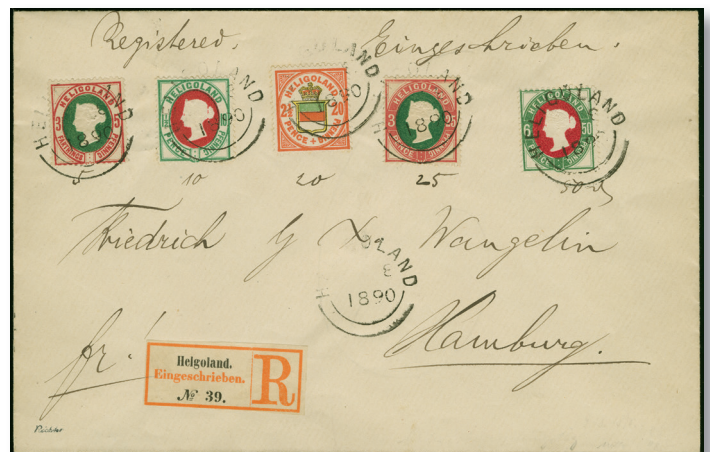 Registered. Eingeschrieben.
HELIGOLAND HELIGOLAND HELIGOLAND HELIGOLAND HELIGOLAND
3 FARTHINGS 5 PFENNIG
2½ PENCE 20
HELIGOLAND
1890
1890
1890
5 10 20 25 50
Friedrich Wangelin
HELIGOLAND
1890
Hamburg.
fr!
Helgoland.
Eingeschrieben.
№ 39.
R
Richter